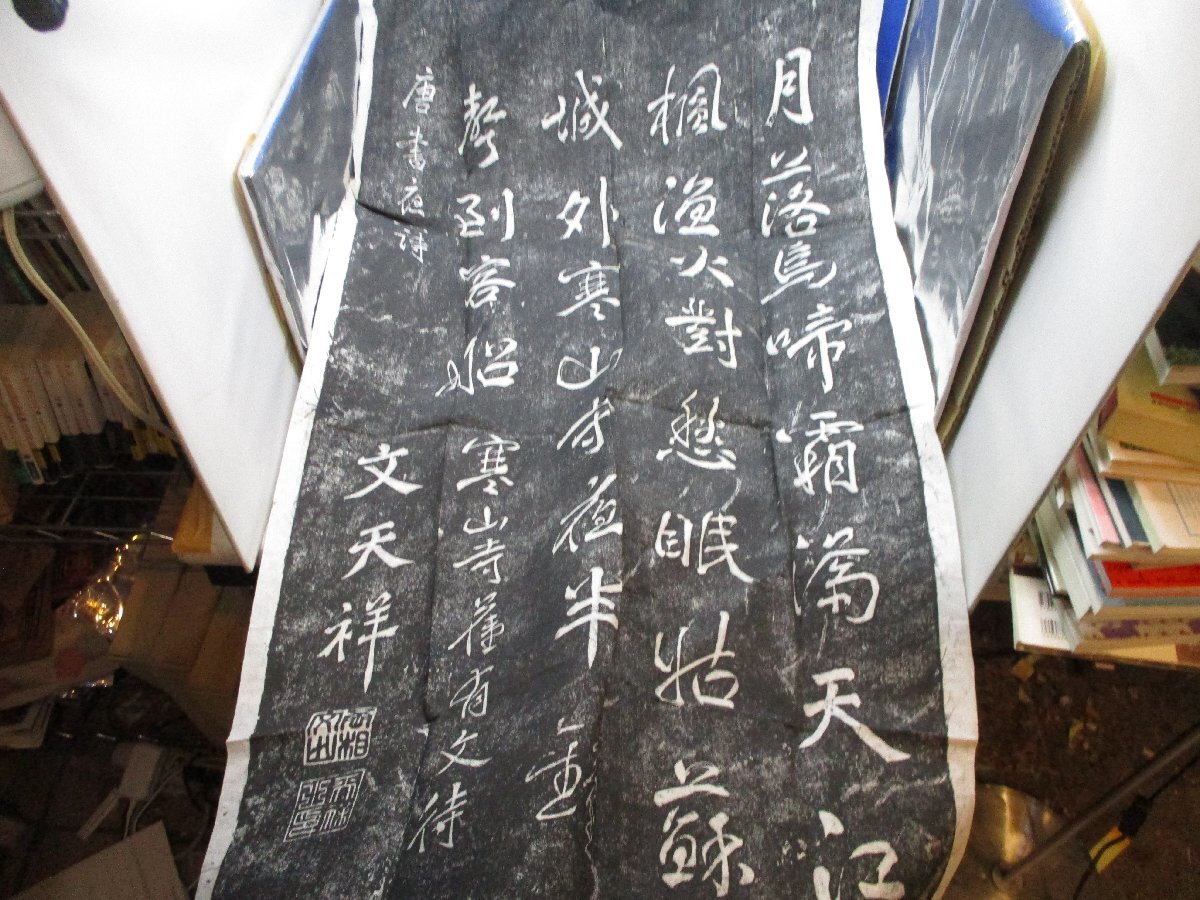 月落烏啼霜滿天江
楓漁火對愁眠姑蘇
城外寒山寺夜半鐘
聲到客船
寒山寺舊有文待
唐書夜詩
文天祥